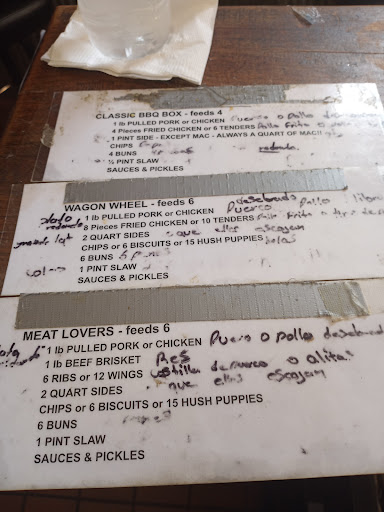 CLASSIC BBQ BOX - feeds 4
1 lb PULLED PORK or CHICKEN Puerco o pollo
4 Pieces FRIED CHICKEN or 6 TENDERS Pollo frito o
1 PINT SIDE - EXCEPT MAC - ALWAYS A QUART OF MAC!!
CHIPS redondo
4 BUNS
½ PINT SLAW
SAUCES & PICKLES
WAGON WHEEL - feeds 6 desebrado
plato redondo 1 lb PULLED PORK or CHICKEN Puerco Pollo
8 Pieces FRIED CHICKEN or 10 TENDERS Pollo frito o
2 QUART SIDES que ellos escojan
CHIPS or 6 BISCUITS or 15 HUSH PUPPIES bolas
6 BUNS 6 panes
1 PINT SLAW
SAUCES & PICKLES
MEAT LOVERS - feeds 6
1 lb PULLED PORK or CHICKEN Puerco o pollo desebrado
1 lb BEEF BRISKET Res
6 RIBS or 12 WINGS costilla de puerco o alitas
2 QUART SIDES que ellos escojan
CHIPS or 6 BISCUITS or 15 HUSH PUPPIES
6 BUNS
1 PINT SLAW
SAUCES & PICKLES